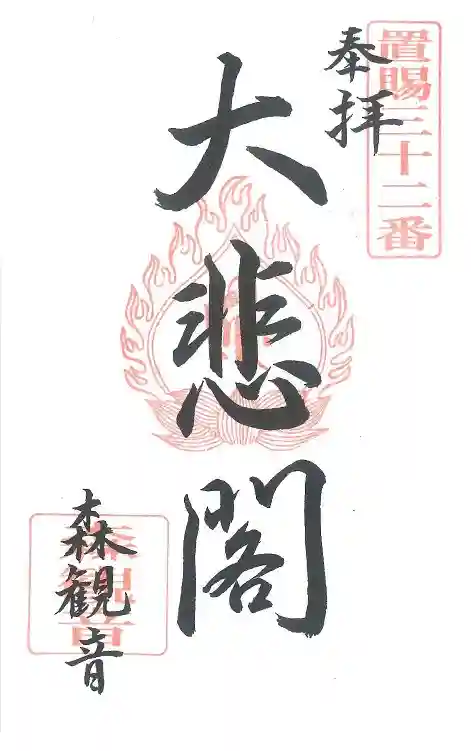 置賜三十二番
奉拝
大悲閣
森観音
森観音